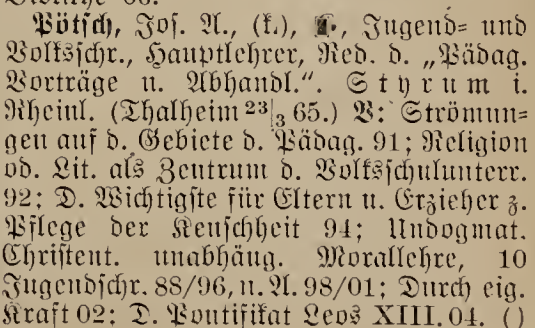 Pötsch, Jos. A., (k.), Jugend= und
Volksschr., Hauptlehrer, Red. d. „Pädag.
Vorträge u. Abhandl.". Styrum i.
Rheinl. (Thalheim 23|3 65.) V: Strömun=
gen auf d. Gebiete d. Pädag. 91; Religion
od. Lit. als Zentrum d. Volksschulunterr.
92; D. Wichtigste für Eltern u. Erzieher z.
Pflege der Keuschheit 94; Undogmat.
Christent. unabhäng. Morallehre, 10
Jugendschr. 88/96, n. A. 98/01; Durch eig.
Kraft 02; D. Pontifikat Leos XIII. 04. ()